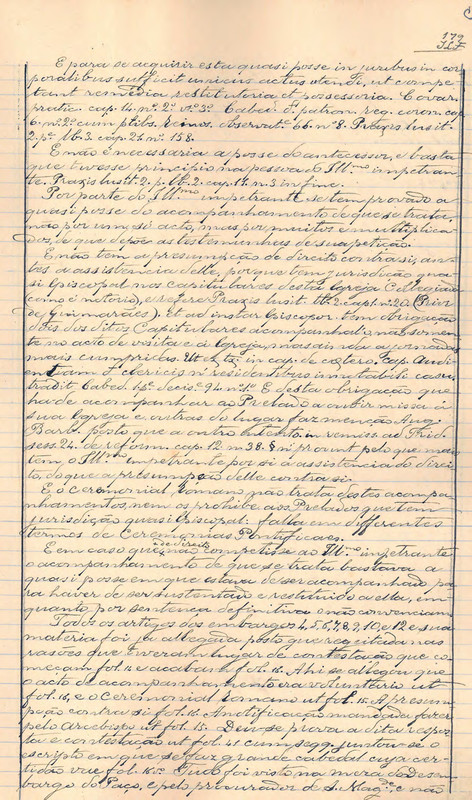 179
E para se adquirir esta quasi posse in juribus in cor
poralibus sufficit unicus actus utendi, ut compe
tant remedia restitutoria et possessoria. Covar.
pratic. cap. 14. nº 2º vº 3º. Cabed. de patron. reg. coron. cap
6. nº 2º cum pluribus. Reinos. observat. 66. nº 8. Praxis lusit.
2. pe. lib. 3. cap. 21. nº 158.
E não é necessaria a posse do antecessor, e basta
que tivesse principio na pessoa do Ill.mo impetran
te. Praxis lusit. 2. p. lib. 2. cap. 14. n. 3 in fine.
Por parte do Ill.mo impetrante se tem provado a
quasi posse do acompanhamento de que se trata,
não por um só acto, mas por muitos e multiplica
dos, de que depõe as testemunhas de sua petição.
E não tem a presumpção de direito contra si, an
tes a assistencia delle, porque tem jurisdição qua
si Episcopal nos capitulares desta Igreja Collegiada
(como é notorio), e refere Praxis lusit. cap. nº 20. (Prior
de Guimarães). Et ad instar Episcopor. tem obrigação
dois dos ditos Capitulares acompanhal-o, não somen
te no acto de visita e á Igreja, mas ainda a jornadas
mais cumpridas. in cap. de cetero. cap. Audi
entiam de clericis nº residentibus
tradit Cabed. 1. p. decis. 94. nº 1º E desta obrigação que
ha de acompanhar ao Prelado a ouvir missa á
sua Igreja e outras do lugar faz menção Aug.
Barb. posto que ao ontro intento in remiss. ad Trid.
sess. 24. de reform. cap. 12. n. 38. § nº provent pelo que mais
tem o Ill.mo impetrante por si á assistencia do direi
to, do que a presumpção delle contra si.
E o Ceremonial Romano não trata destes acompa
nhamentos, nem os prohibe aos Prelados que tem
jurisdição quasi Episcopal: falta em differentes
termos de Ceremonias Pontificaes.
E em caso que de direito não competisse ao Ill.mo impetrante
o acompanhamento de que se trata bastava a
quasi posse em que estava de ser acompanhado pa
ra haver de ser sustentado e restituido a ella, em
quanto por sentença definitiva o não convenciam.
Todos os artigos dos embargos 4, 5, 6, 7, 8, 9, 10, e 12 e sua
materia foi ja allegada posto que recitada nas
rasões que tiveram lugar de contestação que co
meçam fol. 14 e acabam fol. 16. Ahi se allegou que
o acto do acompanhamento era voluntario ut
fol. 16, e o Ceremonial Romano ut fol. 15. A presum
pção contra si fol. 16. A notificação mandada fazer
pelo Arcebispo ut fol. 15. Deu-se prova a dita respos
ta e contestação ut fol. 41 cum seqq. juntou-se o
escripto em que se faz grande cabedal cuja cer
tidão vae fol. 161. Tudo foi visto na mesa do desem
bargo do Paço, e pelo procurador de S. Mag.e, e não